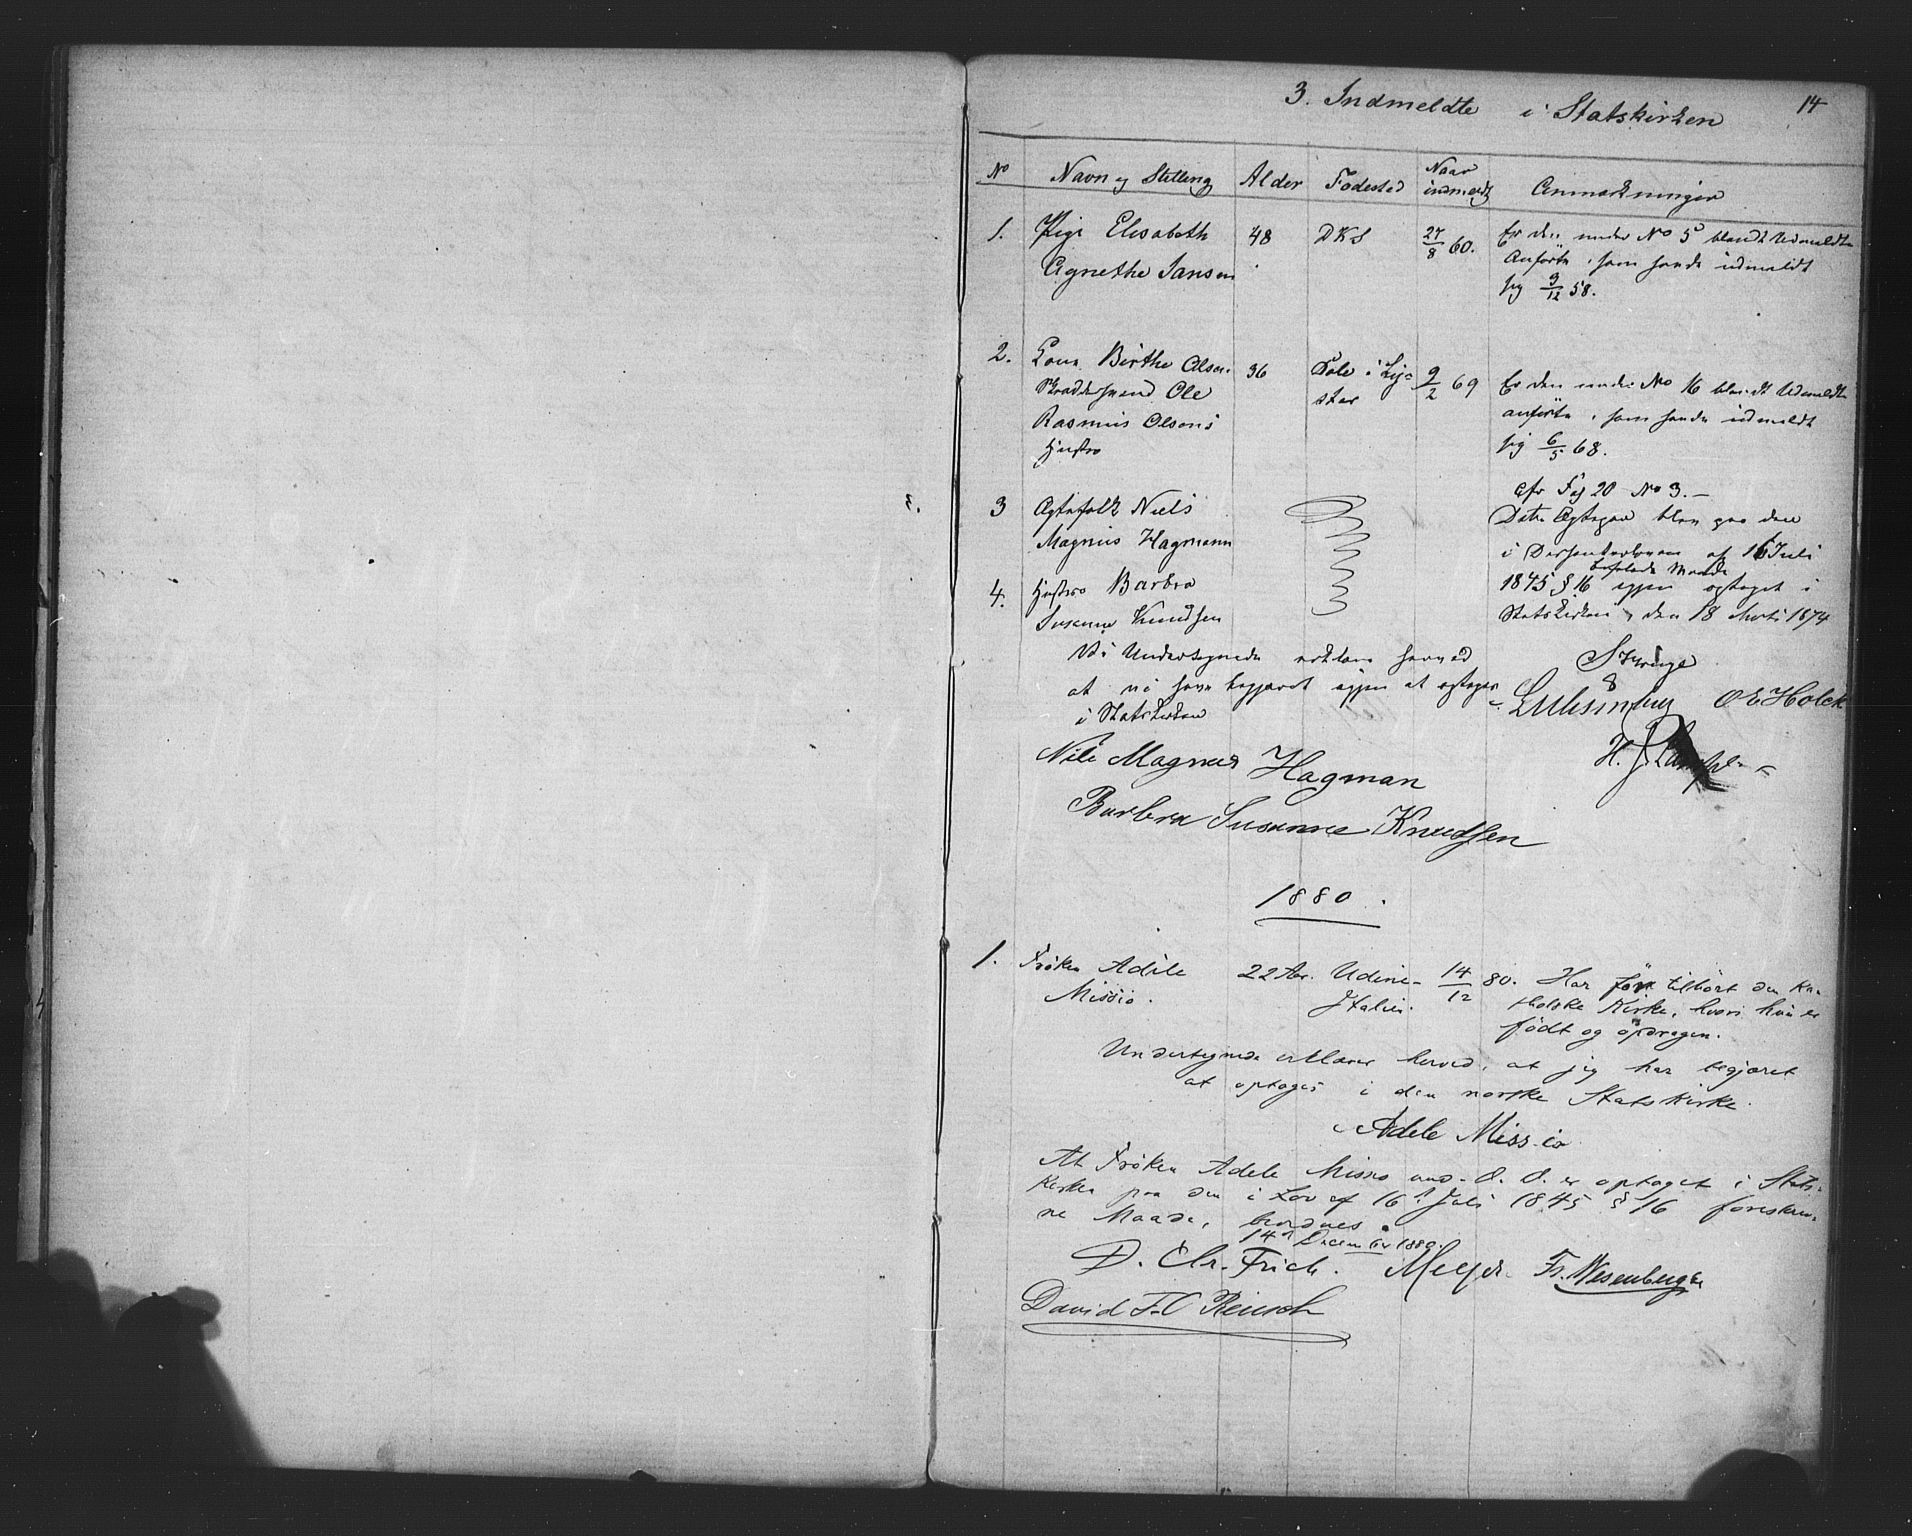 3. Indmeldte i Statskirken 14
No Navn og Stilling Alder Fødested Naar indmeldt Anmærkninger
1. Pige Elisabeth 48 DKS 27/8 60. Er den under No 5 blandt Udmeldte
Agnethe Jansen Anførte, som havde udmeldt
sig 9/12 58.
2. Kone Birthe Olsen 36 9/2 69 Er den under No 16 blandt Udmeldte
Ole anførte, som havde udmeldt
Rasmus Olsens sig 6/5 68.
Hustro
cfr Pag 20 No 3.
3 Ægtefolk Niels Dette Ægtepar blev paa den
Magnus Hagmann i Dissenterloven af 16 Juli
befalede Maade
4. Hustro Barbra 1845 § 16 igjen optaget i
Susanne Knudsen Statskirken den 18 1874
Vi Undertegnede erklære herved
at vi have begjæret igjen at optages
i Statskirken
O E Holck
H. J.
Nils Magnus Hagman
Barbra Susanne Knudsen
1880.
1. Frøken Adele 22 Aar. Udine 14/12 80. Har før tilhørt den ka-
Missio. Italien. tholske Kirke, hvori hun er
født og opdragen.
Undertegnede erklærer herved, at jeg har begjæret
at optages i den norske Statskirke.
Adele Missio
At Frøken Adele Missio und. D. D. er optaget i Stats-
kirken paa den i Lov af 16de Juli 1845 § 16 foreskrev-
ne Maade, bevidnes
14de December 1880.
D. Chr. Frich. Meyer Fr. Wesenberg
David F.C Reusch